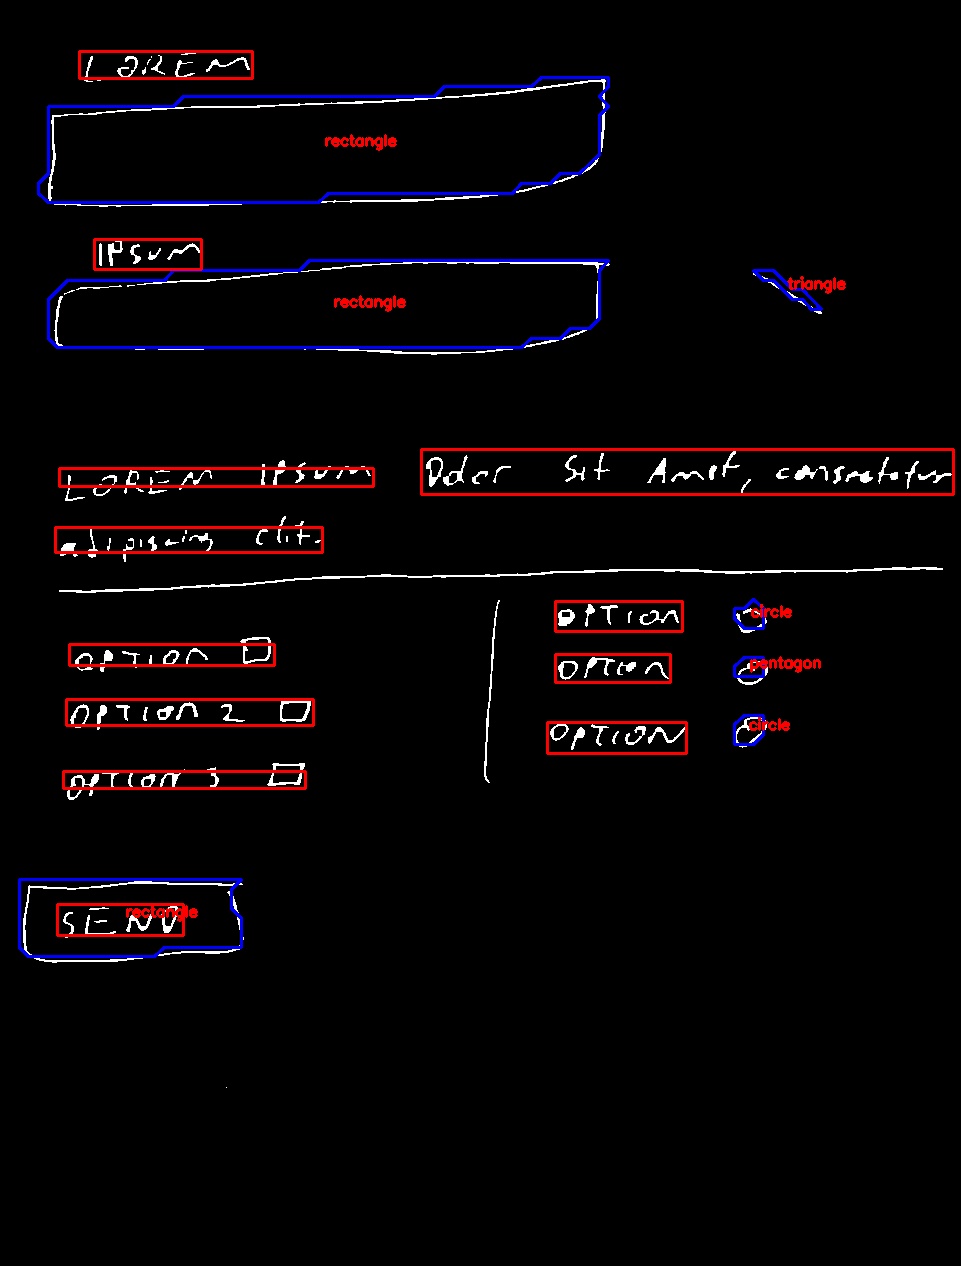 LOREM
rectangle
IPSUM
rectangle
triangle
LOREM IPSUM Dolor Sit Amet, consectetur
adipiscing elit.
OPTION circle
OPTION
OPTION pentagon
OPTION 2
OPTION circle
OPTION 3
rectangle
SEND